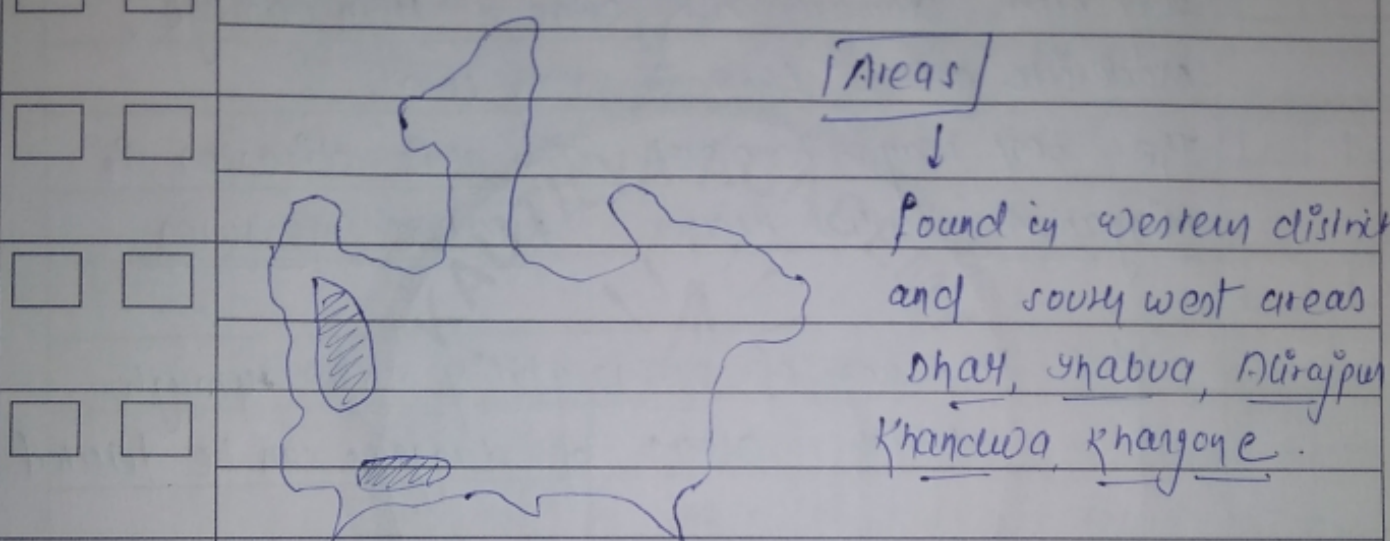 Areas
↓
found in western district
and south west areas
Dhar, Jhabua, Alirajpur
Khandwa, Khargone.